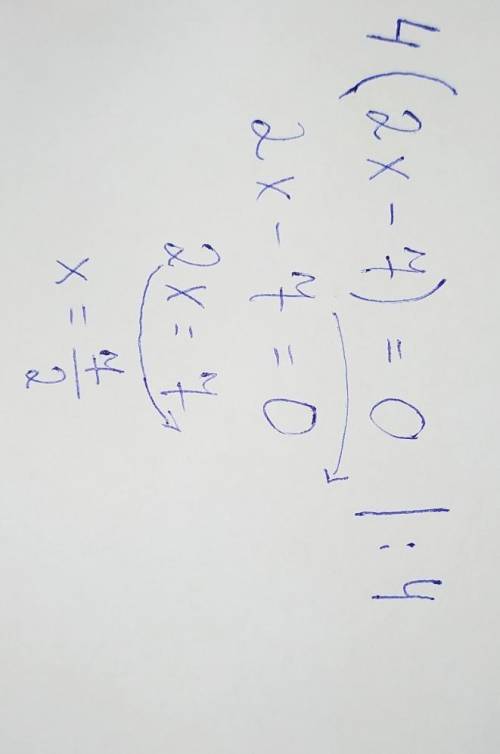 4(2x-7)=0 |:4
2x-7=0
2x=7
x=7/2